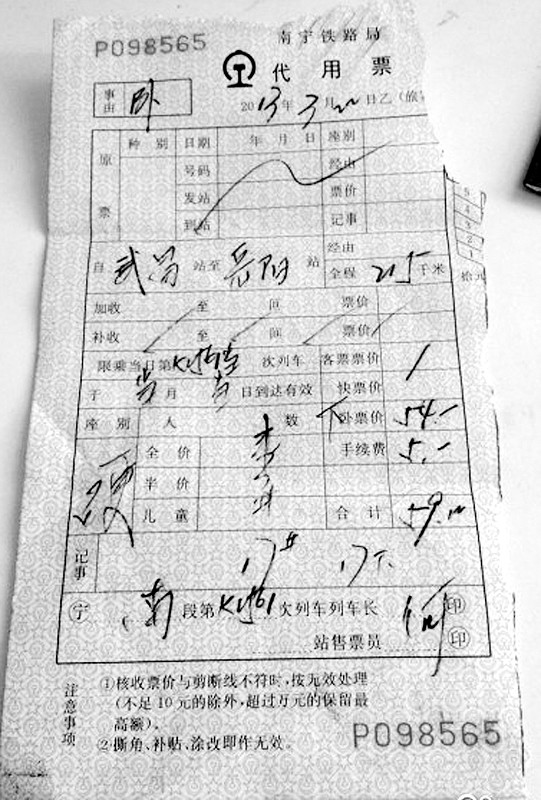 P098565
南宁铁路局
代用票
事由 卧
2013年3月 日乙(旅
原票 种别 日期 年月日 座别
号码 经由
发站 票价
到站 记事
自 武昌 站至 岳阳 站 经由
全程 215 千米 拾元
加收 至 间 票价
补收 至 间 票价
限乘当日第 次列车 客票票价 1
于 当 月 当 日到达有效 快票价
座别 人数 下卧票价 54.-
硬 全价 手续费 5.-
半价
儿童 合计 59.
记事 17# 17下
宁 南 段第 次列车列车长 印
站售票员 印
注意事项
①核收票价与剪断线不符时,按无效处理
(不足10元的除外,超过万元的保留最
高额)。
②撕角、补贴、涂改即作无效。
P098565